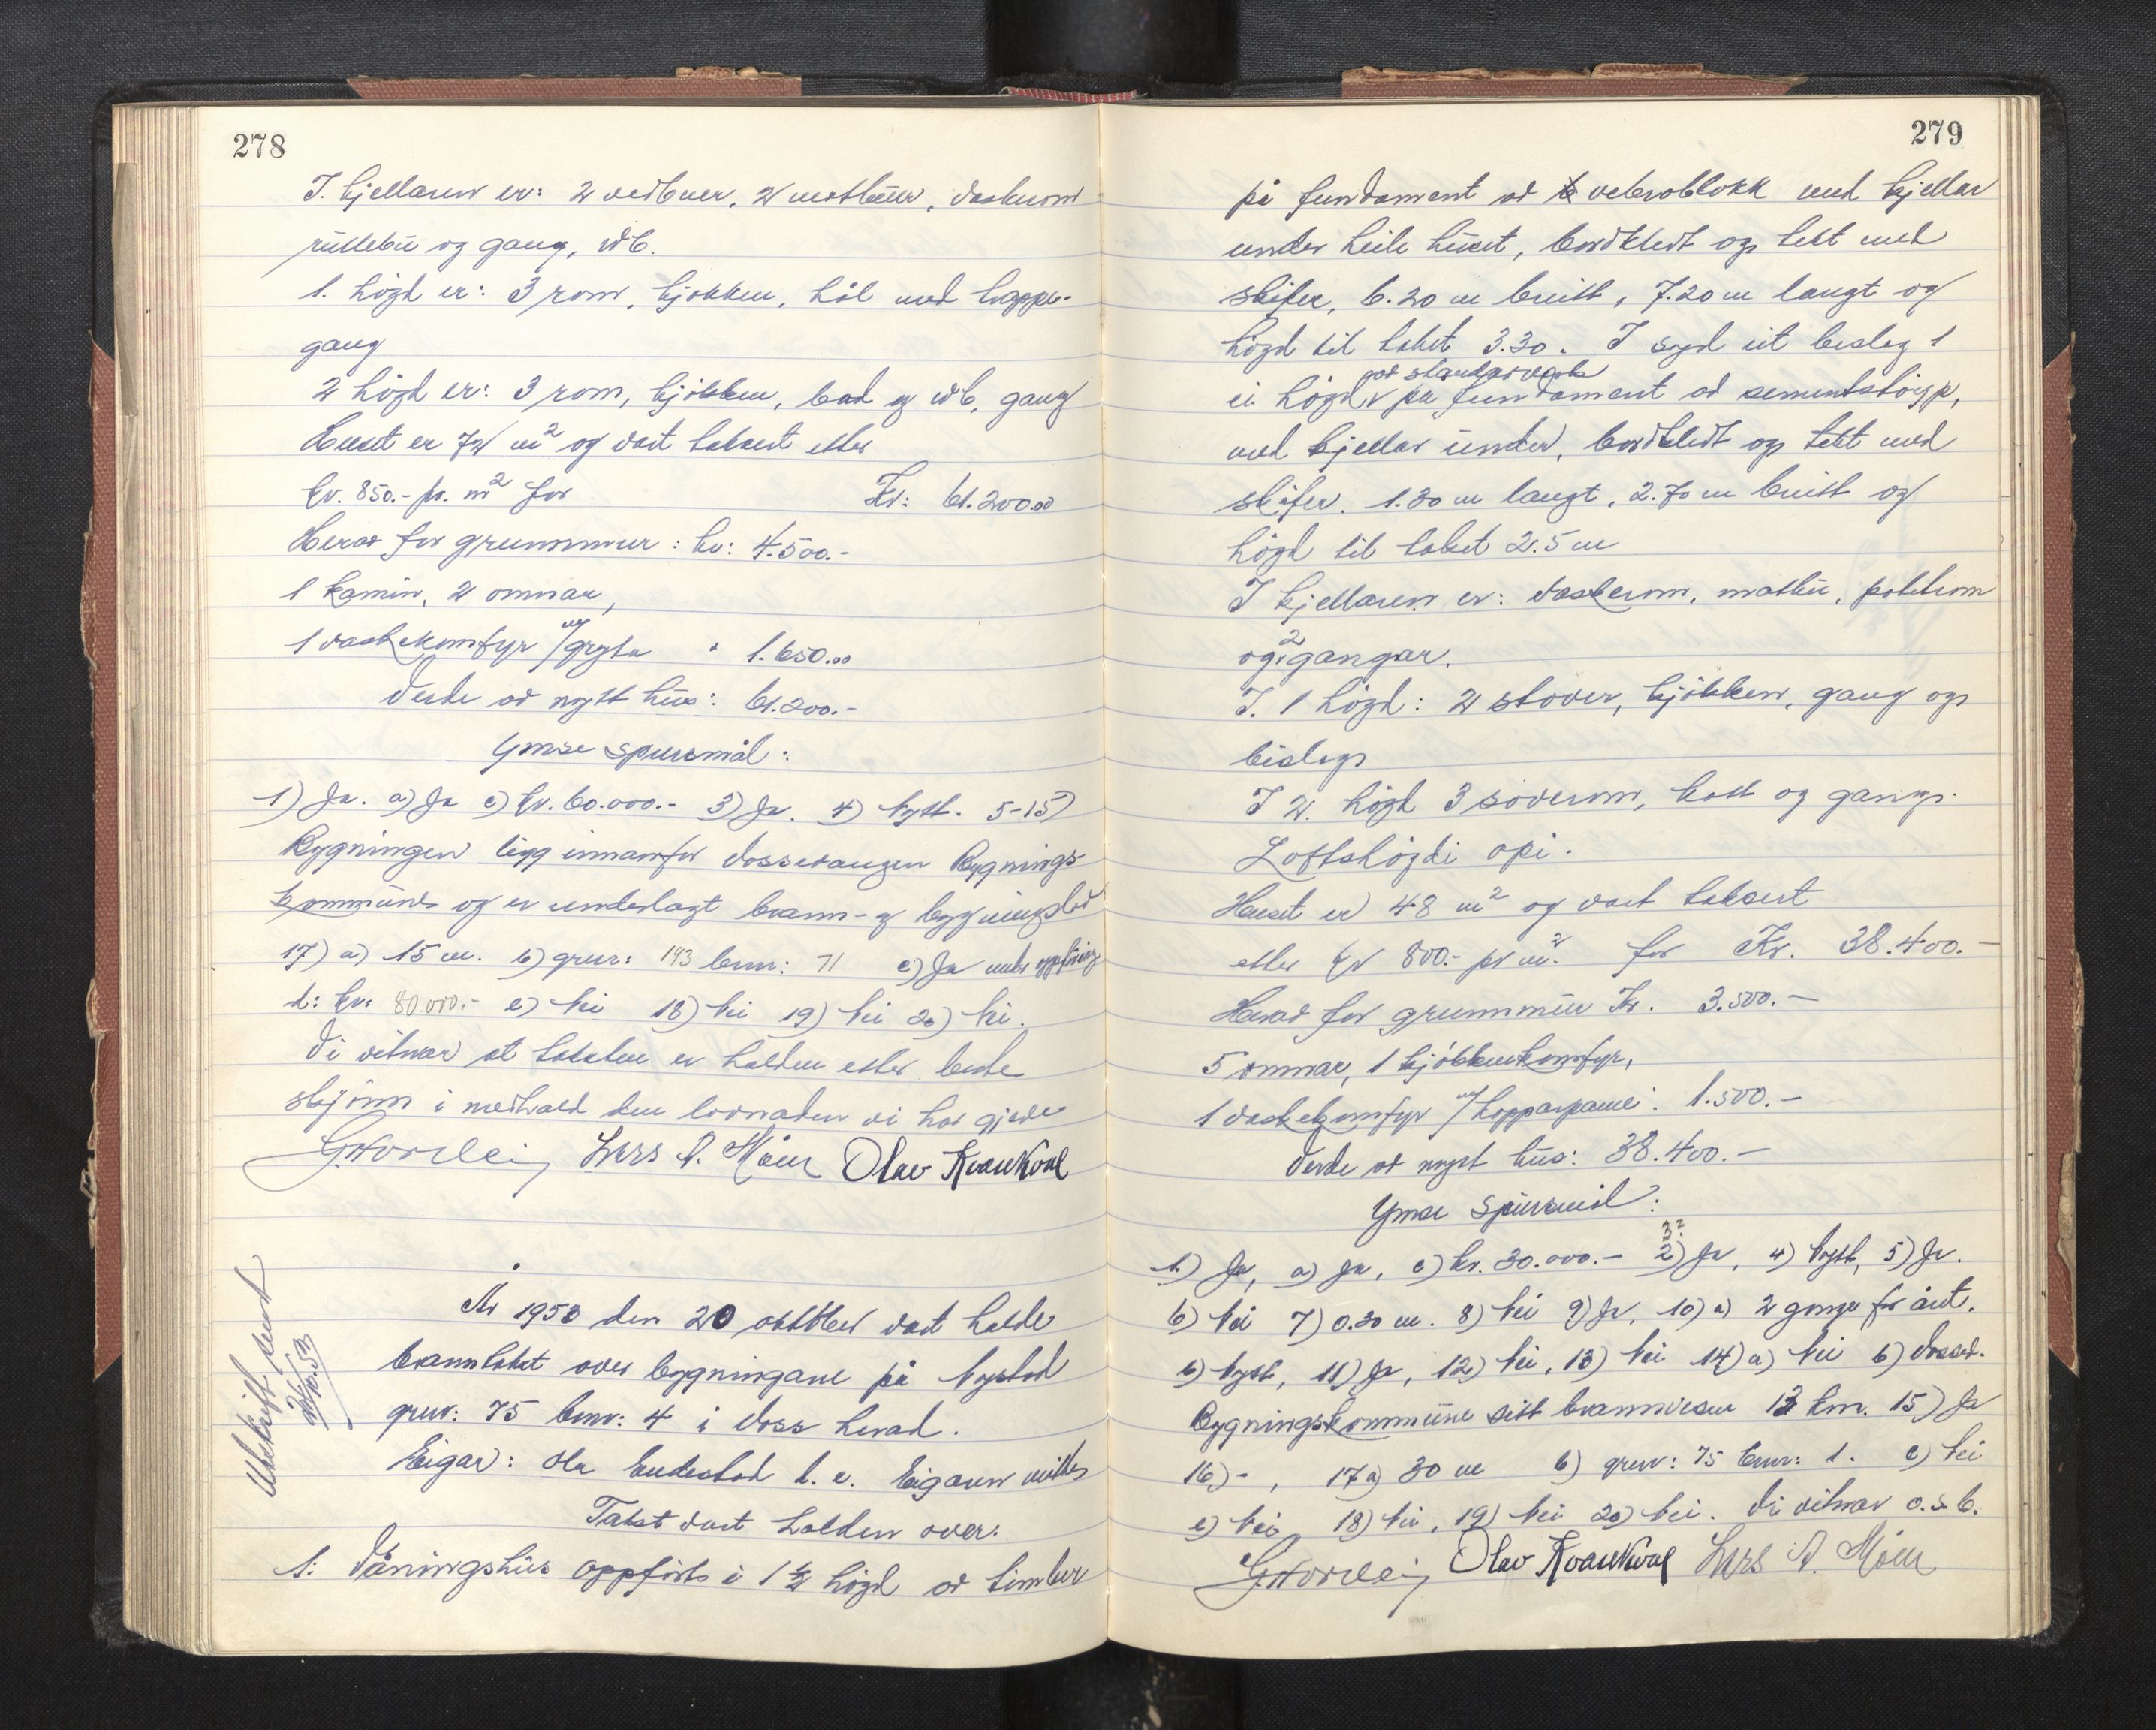 278
I. kjellaren er: 2 vedbuer, 2 matbuer, vaskerom
rullebu og gang, WC.
1. högd er: 3 rom, kjøkken, hål med trappe-
gang
2 högd er: 3 rom, kjökken, bad og WC, gang
Huset er 72 m² og vart taksert etter
kr. 850.- pr. m² for Kr: 61.200.00
Herav for grunnmur: kr: 4.500.-
1 kamin, 2 omnar,
1 vaskekomfyr m/gryta " 1.650.00
Verde av nytt hus: 61.200.-
Ymse spursmål:
1) Ja. a) Ja c) kr. 60.000.- 3) Ja. 4) Nytt. 5-15)
Bygningen ligg innanfor Vossevangen Bygnings-
kommune og er underlagt brann- og bygningslov
17) a) 15 m. b) gnr: 193 bnr: 71 c) Ja under oppföring
d: kr: 80.000.- e) Nei 18) Nei 19) Nei 20) Nei.
Vi vitnar at taksten er halden etter beste
skjönn i medhald den lovnaden vi har gjeve
Lars A. Möen Olav Kvarekval
Utskrift sent
21/10.53
År 1953 den 20 oktober vart halde
branntakst over bygningane på Nystad
gnr: 75 bnr: 4 i Voss herad.
Eigar: Ola Endestad d. e. Eigaren møtte
Takst vart halden over:
1: Våningshus oppförts i 1 1/2 högd av timber
279
på fundament av vebroblokk med kjellar
under heile huset, bordkledt og tekt med
skifer, 6.20 m breitt, 7.20 m langt og
högd til taket 3.30. I syd eit bislag i
ei högd av standarverk på fundament av sementstöyp,
med kjellar under, bordkledt og tekt med
skifer. 1.30 m langt, 2.70 m breitt og
högd til taket 2.5 m
I kjellaren er: vaskerom, matbu, potetrom
og 2 gangar.
I. 1 högd: 2 stover, kjökken, gang og
bislag
I 2. högd 3 soverom, kott og gang.
Loftshögdi opi.
Huset er 48 m² og vart taksert
etter kr 800.- pr m². for Kr. 38.400.-
Herav for grunnmur Kr. 3.500.-
5 omnar, 1 kjökkenkomfyr,
1 vaskekomfyr m/kopparpanne: 1.500.-
Verde av nytt hus: 38.400.-
Ymse Spursmål:
1.) Ja, a) Ja, c) kr. 30.000.- 2) 3? Ja, 4) Nytt, 5) Ja.
6) Nei 7) 0.30 m. 8) Nei 9) Ja, 10) a) 2 gonger for året.
b) Nytt, 11) Ja, 12) Nei, 13) Nei 14) a) Nei b) Vossev.
Bygningskommune sitt brannvesen 13 km. 15) Ja
16) - , 17 a) 30 m b) gnr: 75 bnr: 1. c) Nei
e) Nei 18) Nei, 19) Nei 20) Nei. Vi vitnar o.s.b.
Olav Kvarekval Lars A. Möen